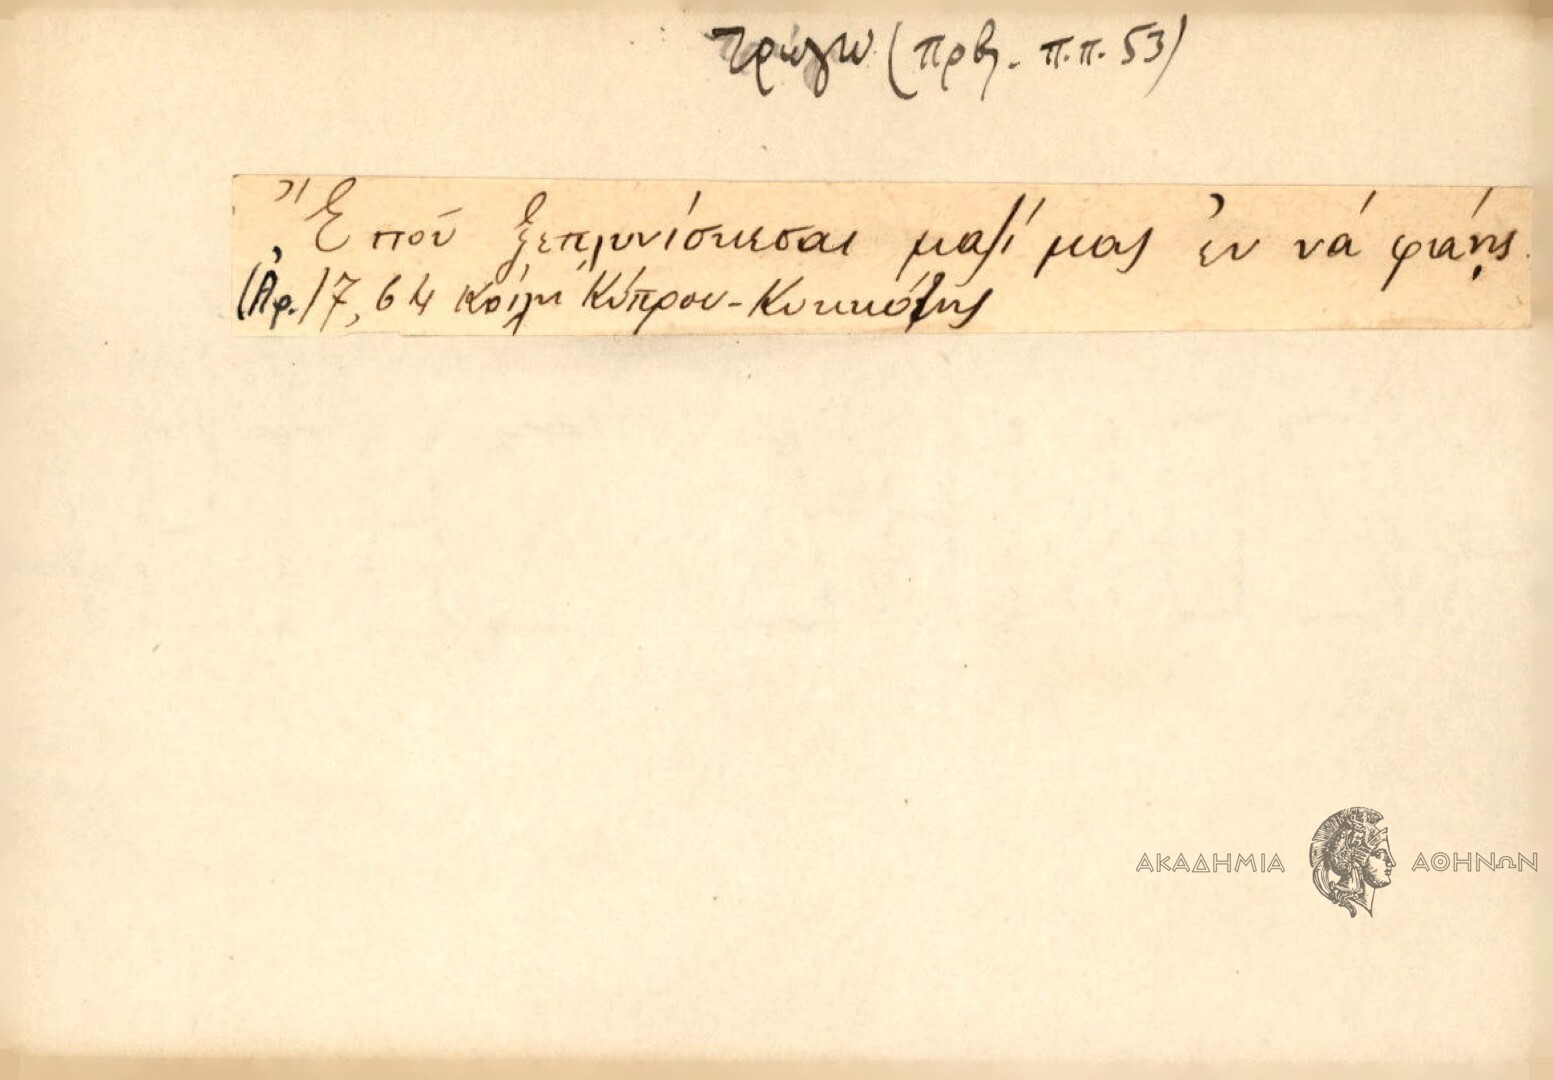 τρώγω (πρβ. π.π. 53)
Ἔ πού ξεπλυνίσκεσαι μαζί μας ἐν νά φάῃς.
(Ἀρ.) 7, 64 Κοίλη Κύπρου - Κυκκώτης
ΑΚΑΔΗΜΙΑ ΑΘΗΝΩΝ